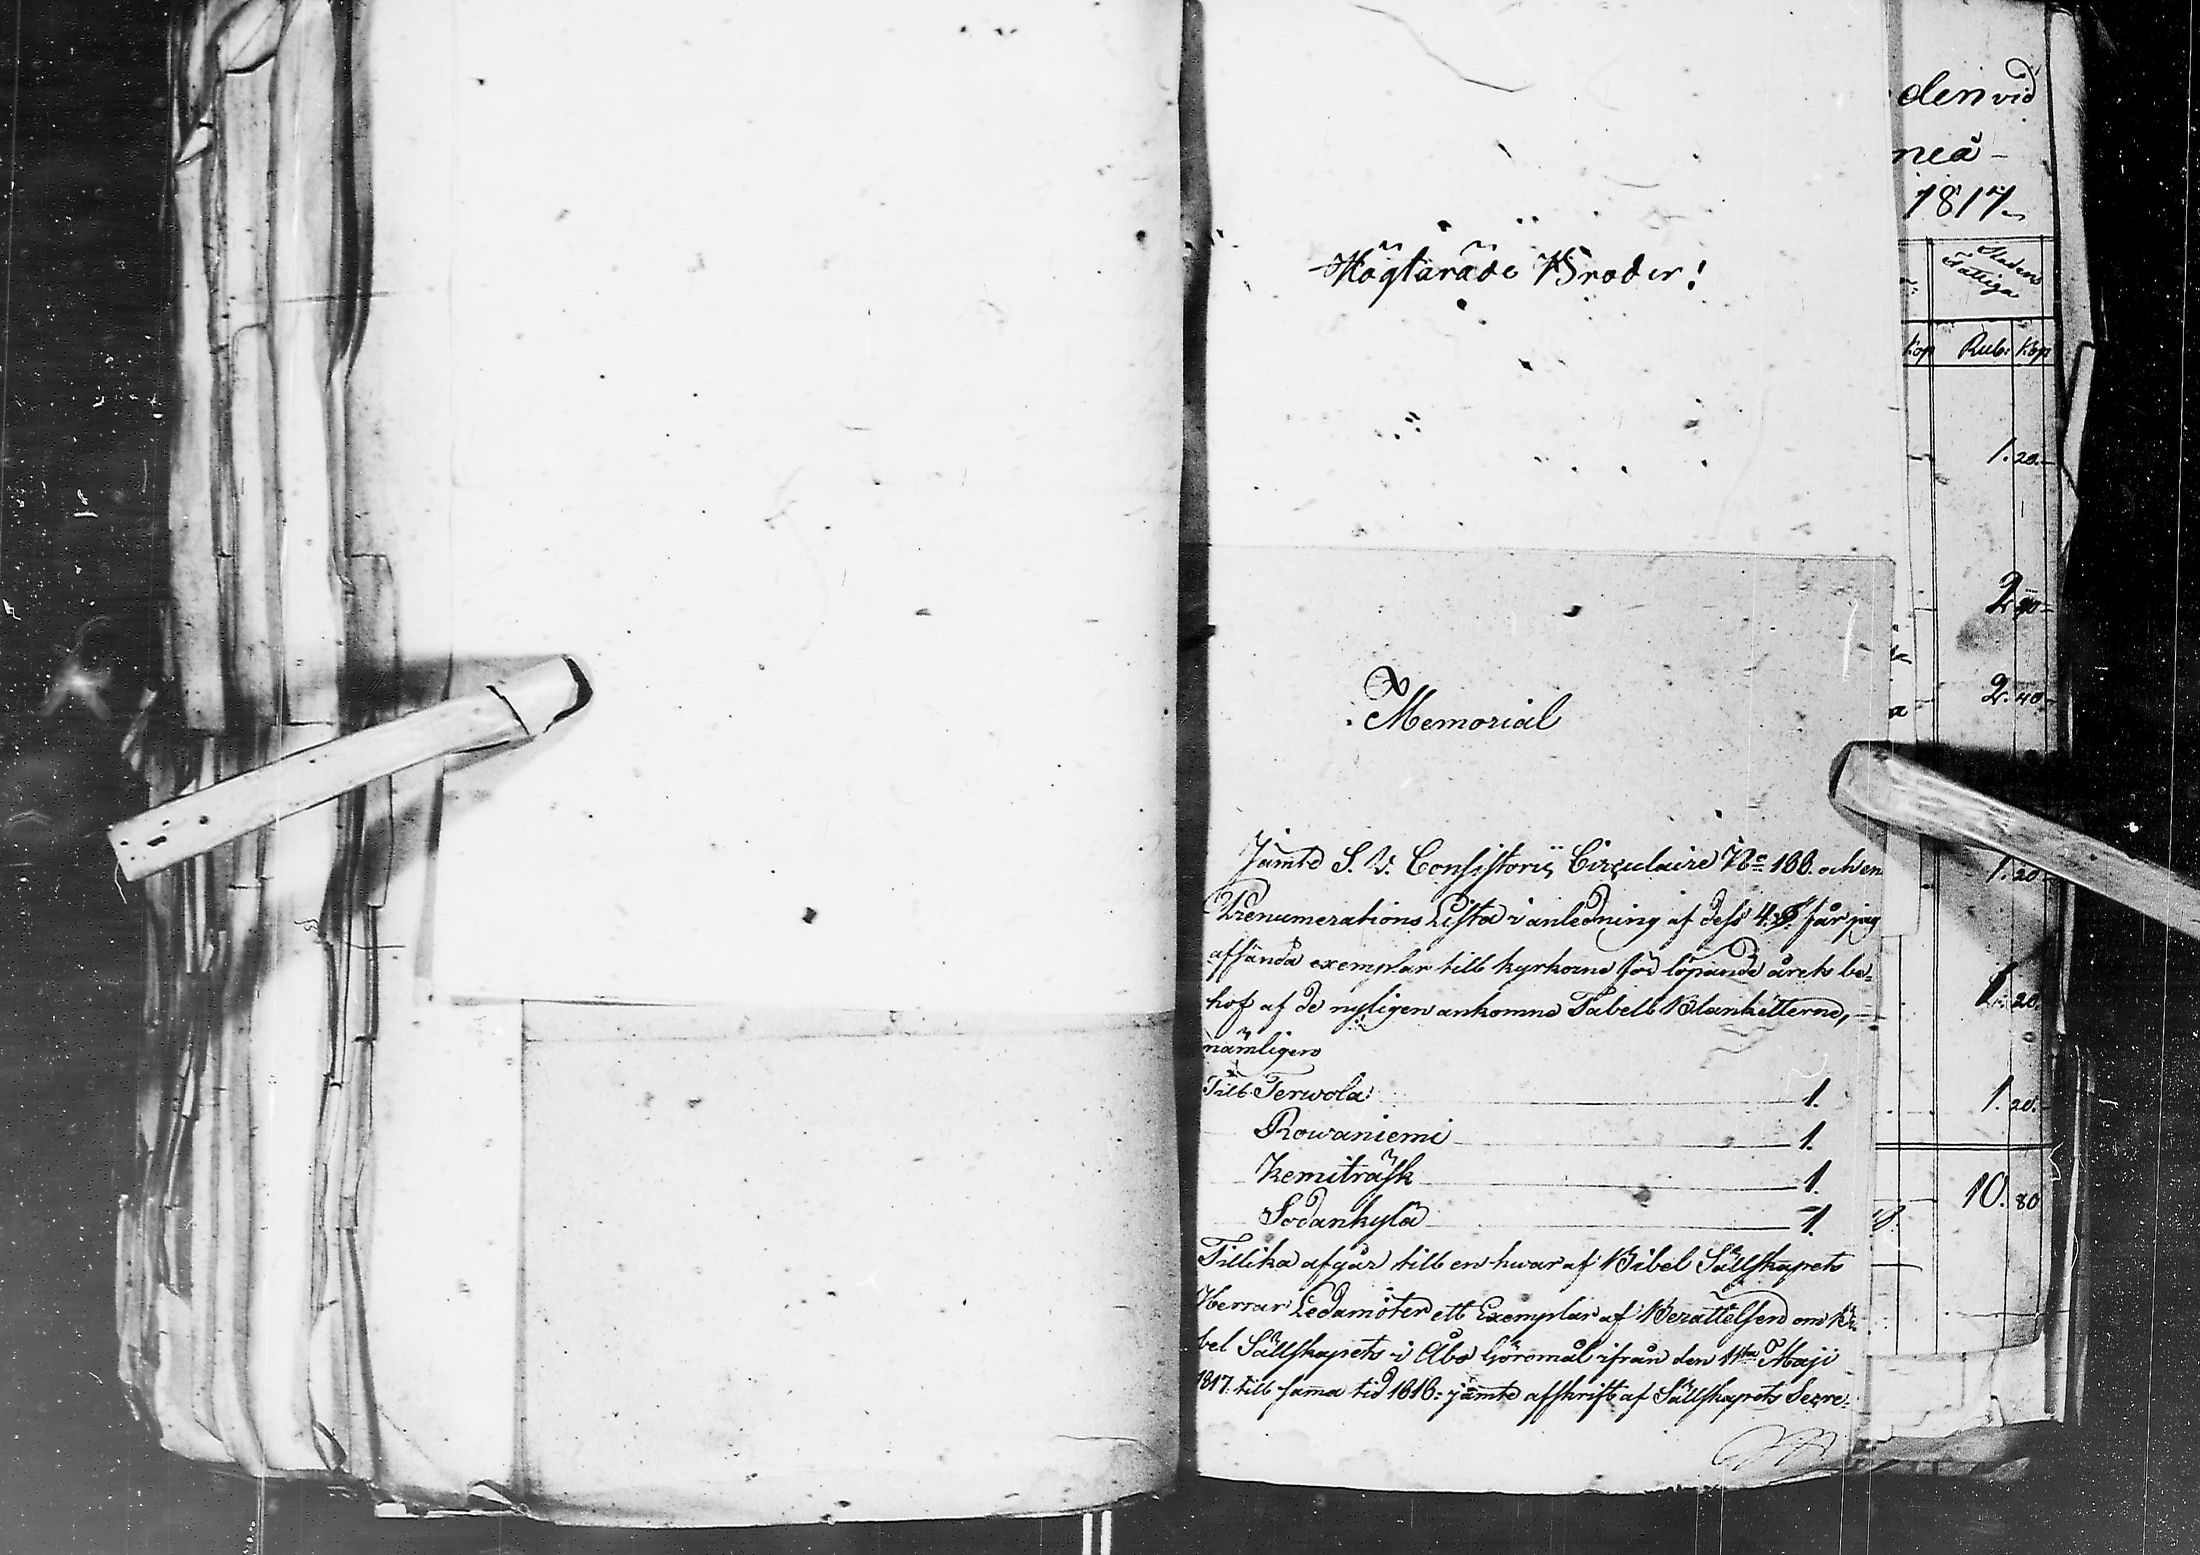 Högtärade Bröder!
Memorial
Jämte S. V. Consistorii Circulaire No 166. och en
Prenumerations Lista i anledning af dess 4. §. får jag
affsända exemplar till kyrkorne för löpande årets be-
hof af de nyligen ankomne Tabell Blanketterne,
nämligen
Till Terwola 1.
Rowaniemi 1.
Kemiträsk 1.
Sodankylä 1.
Tillika afgår till en hwar af Bibel Sällskapets
Herrar Ledamöter ett Exemplar af Berättelsen om Bi-
bel Sällskapets i Åbo Göromål ifrån den 11ta Maji
1817. till samma tid 1818: jämte afskrift af Sällskapets Secre-
den vid
neå
1817
Stadens
Fattiga
Kop Rub: Kop
1. 20.
2. 40
2. 40
1. 20
1. 20
1. 20.
10. 80